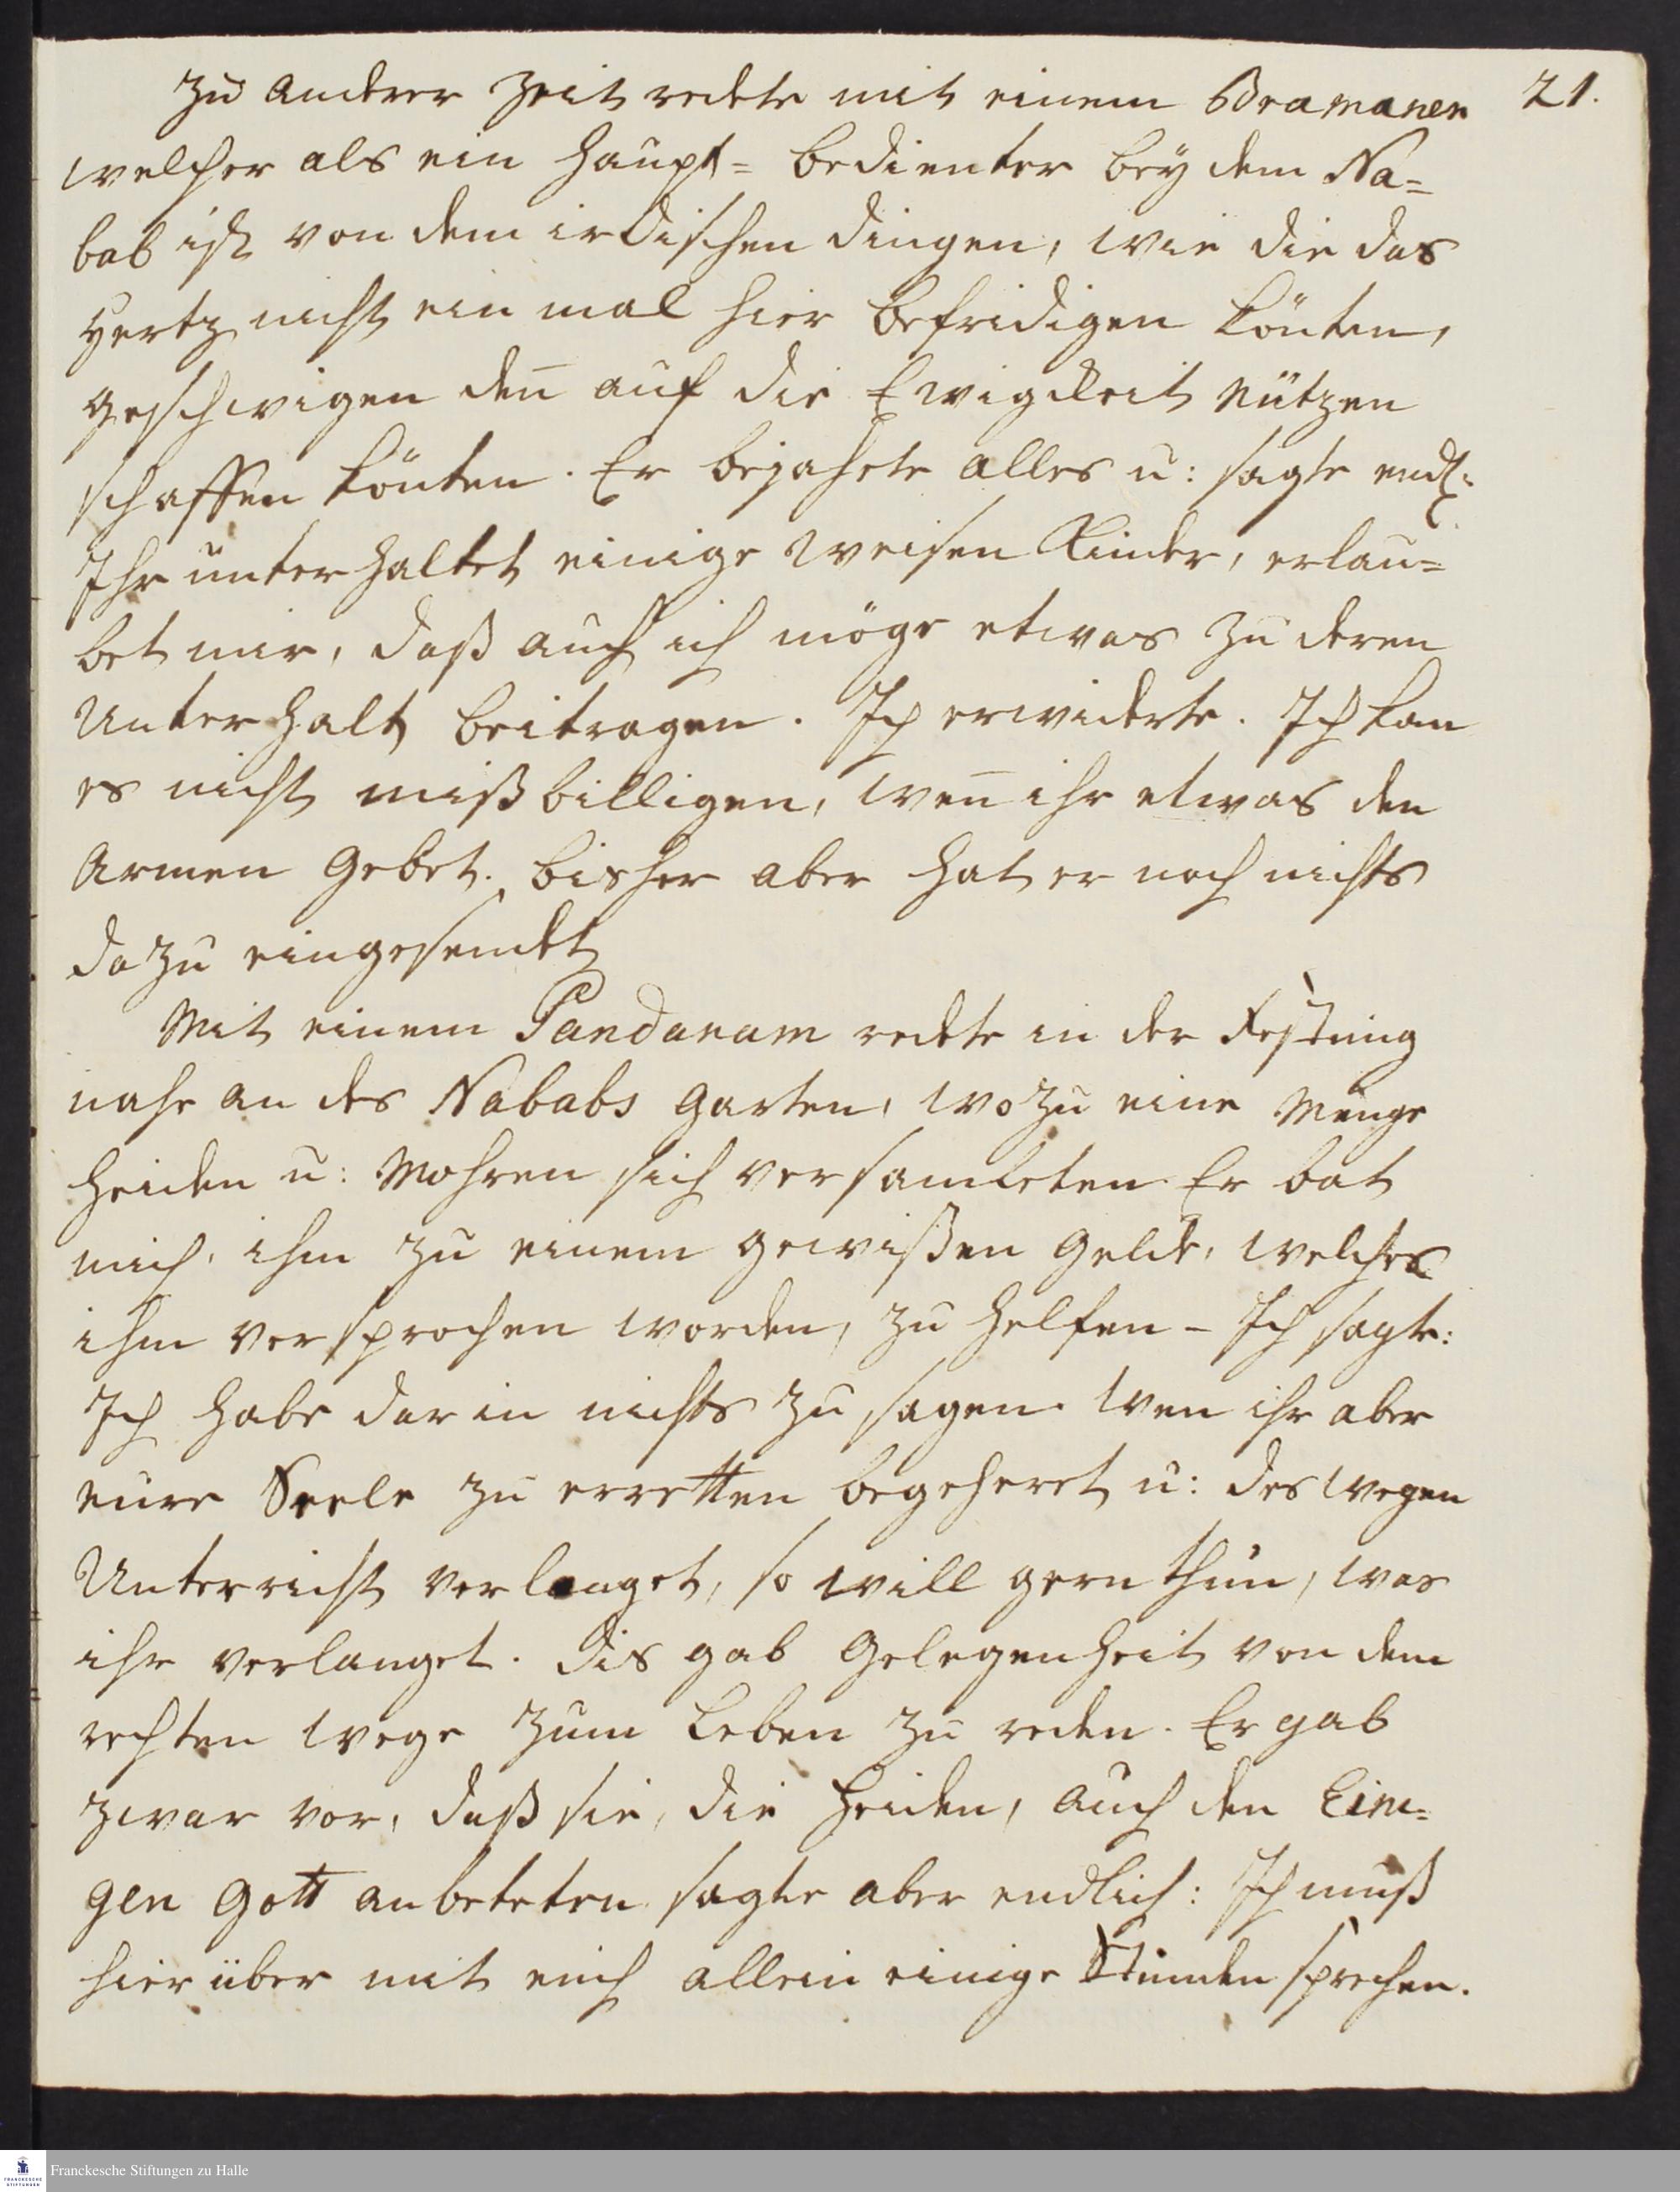 Zu anderer Zeit redete mit einem Bramanen 21.
welcher als ein Haupt= bedienter bey dem Na=
bab ist von dem irdischen dingen, wie die das
Hertz nicht ein mal hier befridigen könten,
geschwigen den̄ auf die Ewigkeit nützen
schaffen könten. Er bejahete alles u: sagte endl:
Ihr unterhaltet einige weisen Kinder, erlau=
bet mir, daß auch ich möge etwas zu deren
Unterhalt beitragen. Ich erwiderte. Ich kan
es nicht mißbilligen, wen̄ ihr etwas den
Armen gebet. bisher aber hat er noch nichts
dazu eingesendet
Mit einem Pandaram redete in der Festung
nahe an des Nababs garten, wozu eine Menge
Heiden u: Mohren sich versamleten. Er bat
mich, ihm zu einem gewißen gelde, welches
ihm versprochen worden, zu helfen – Ich sagte:
Ich habe darin nichts zu sagen. Wen ihr aber
eure Seele zu erretten begeheret u: deswegen
Unterricht verlanget, so will gern thun, was
ihr verlanget. Dis gab gelegenheit von dem
rechten wege zum Leben zu reden. Er gab
zwar vor, daß sie, die Heiden, auch den Eini=
gen Gott anbeteten sagte aber endlich: Ich muß
hierüber mit euch allein einige Stunden sprechen.
Franckesche Stiftungen zu Halle
FRANCKESCHE STIFTUNGEN